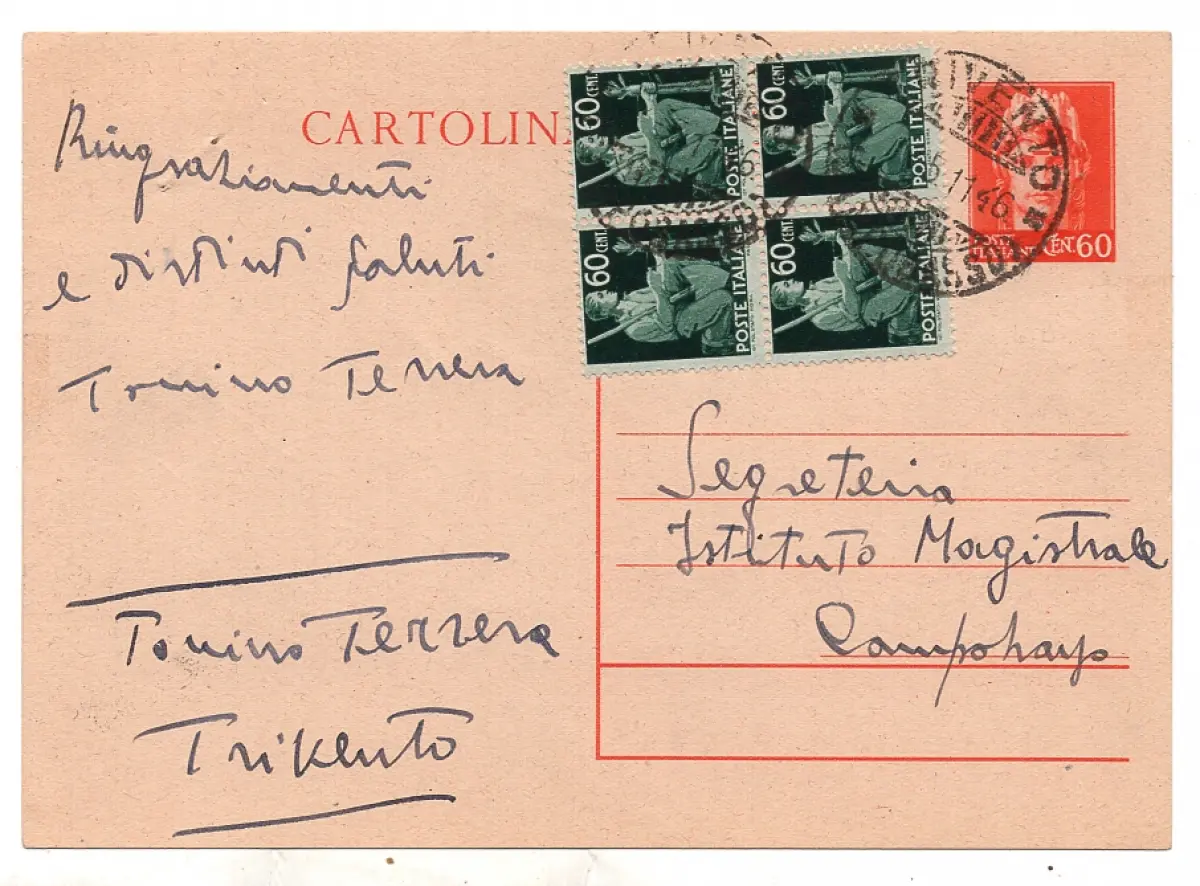 CARTOLIN
Ringraziamenti
e distinti saluti
Tonino Terrera
Tonino Terrera
Trivento
60 CENT.
POSTE ITALIANE
60 CENT.
POSTE ITALIANE
60 CENT.
POSTE ITALIANE
60 CENT.
POSTE ITALIANE
IVENTO
11 46
CEN. 60
Segreteria
Istituto Magistrale
Campobasso